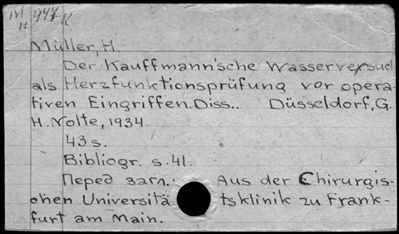 М 947
Müller, H.
Der Kauffmann'sche Wasserversuch
als Herzfunktionsprüfung vor opera-
tiven Eingriffen. Diss.. Düsseldorf, G.
H. Nolte, 1934.
43 s.
Bibliogr. s. 41.
Перед загл.: Aus der Chirurgis-
chen Universitätsklinik zu Frank-
furt am Main.